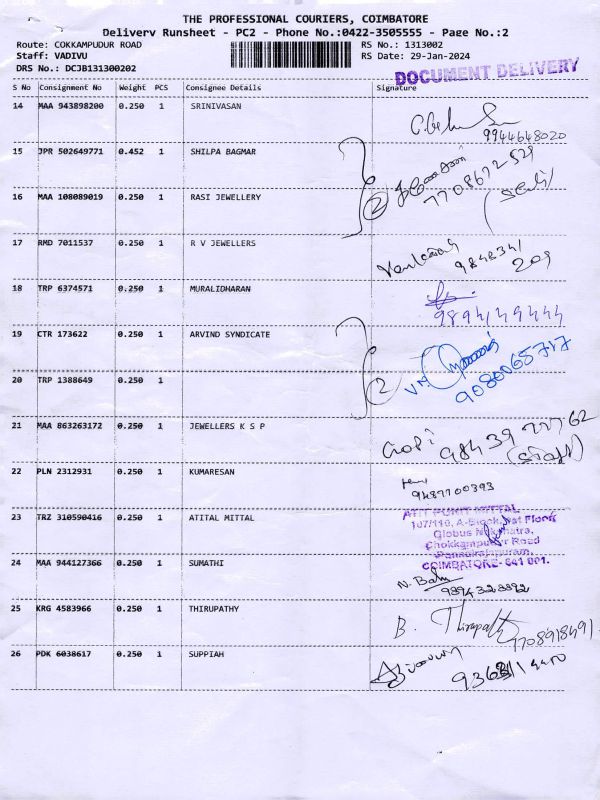 THE PROFESSIONAL COURIERS, COIMBATORE
Delivery Runsheet - PC2 - Phone No.:0422-3505555 - Page No.:2
Route: COKKAMPUDUR ROAD
RS No.: 1313002
Staff: VADIVU
RS Date: 29-Jan-2024
DRS No.: DCJB131300202
DOCUMENT DELIVERY
S No Consignment No Weight PCS Consignee Details Signature
14 MAA 943898200 0.250 1 SRINIVASAN
9944648020
15 JPR 502649771 0.452 1 SHILPA BAGMAR
7708672529
16 MAA 108089019 0.250 1 RASI JEWELLERY
2
17 RMD 7011537 0.250 1 R V JEWELLERS
9848341
209
18 TRP 6374571 0.250 1 MURALIDHARAN
9894149444
19 CTR 173622 0.250 1 ARVIND SYNDICATE
20 TRP 1388649 0.250 1
2
9080065717
21 MAA 863263172 0.250 1 JEWELLERS K S P
98439 77762
22 PLN 2312931 0.250 1 KUMARESAN
9487700393
23 TRZ 310590416 0.250 1 ATITAL MITTAL
107/110, A-Block, Floor
Globus
Chokkampudur Road
COIMBATORE- 641 001.
24 MAA 944127366 0.250 1 SUMATHI
N. Babu
9894323892
25 KRG 4583966 0.250 1 THIRUPATHY
B. Thirupathy
7708918491
26 PDK 6038617 0.250 1 SUPPIAH